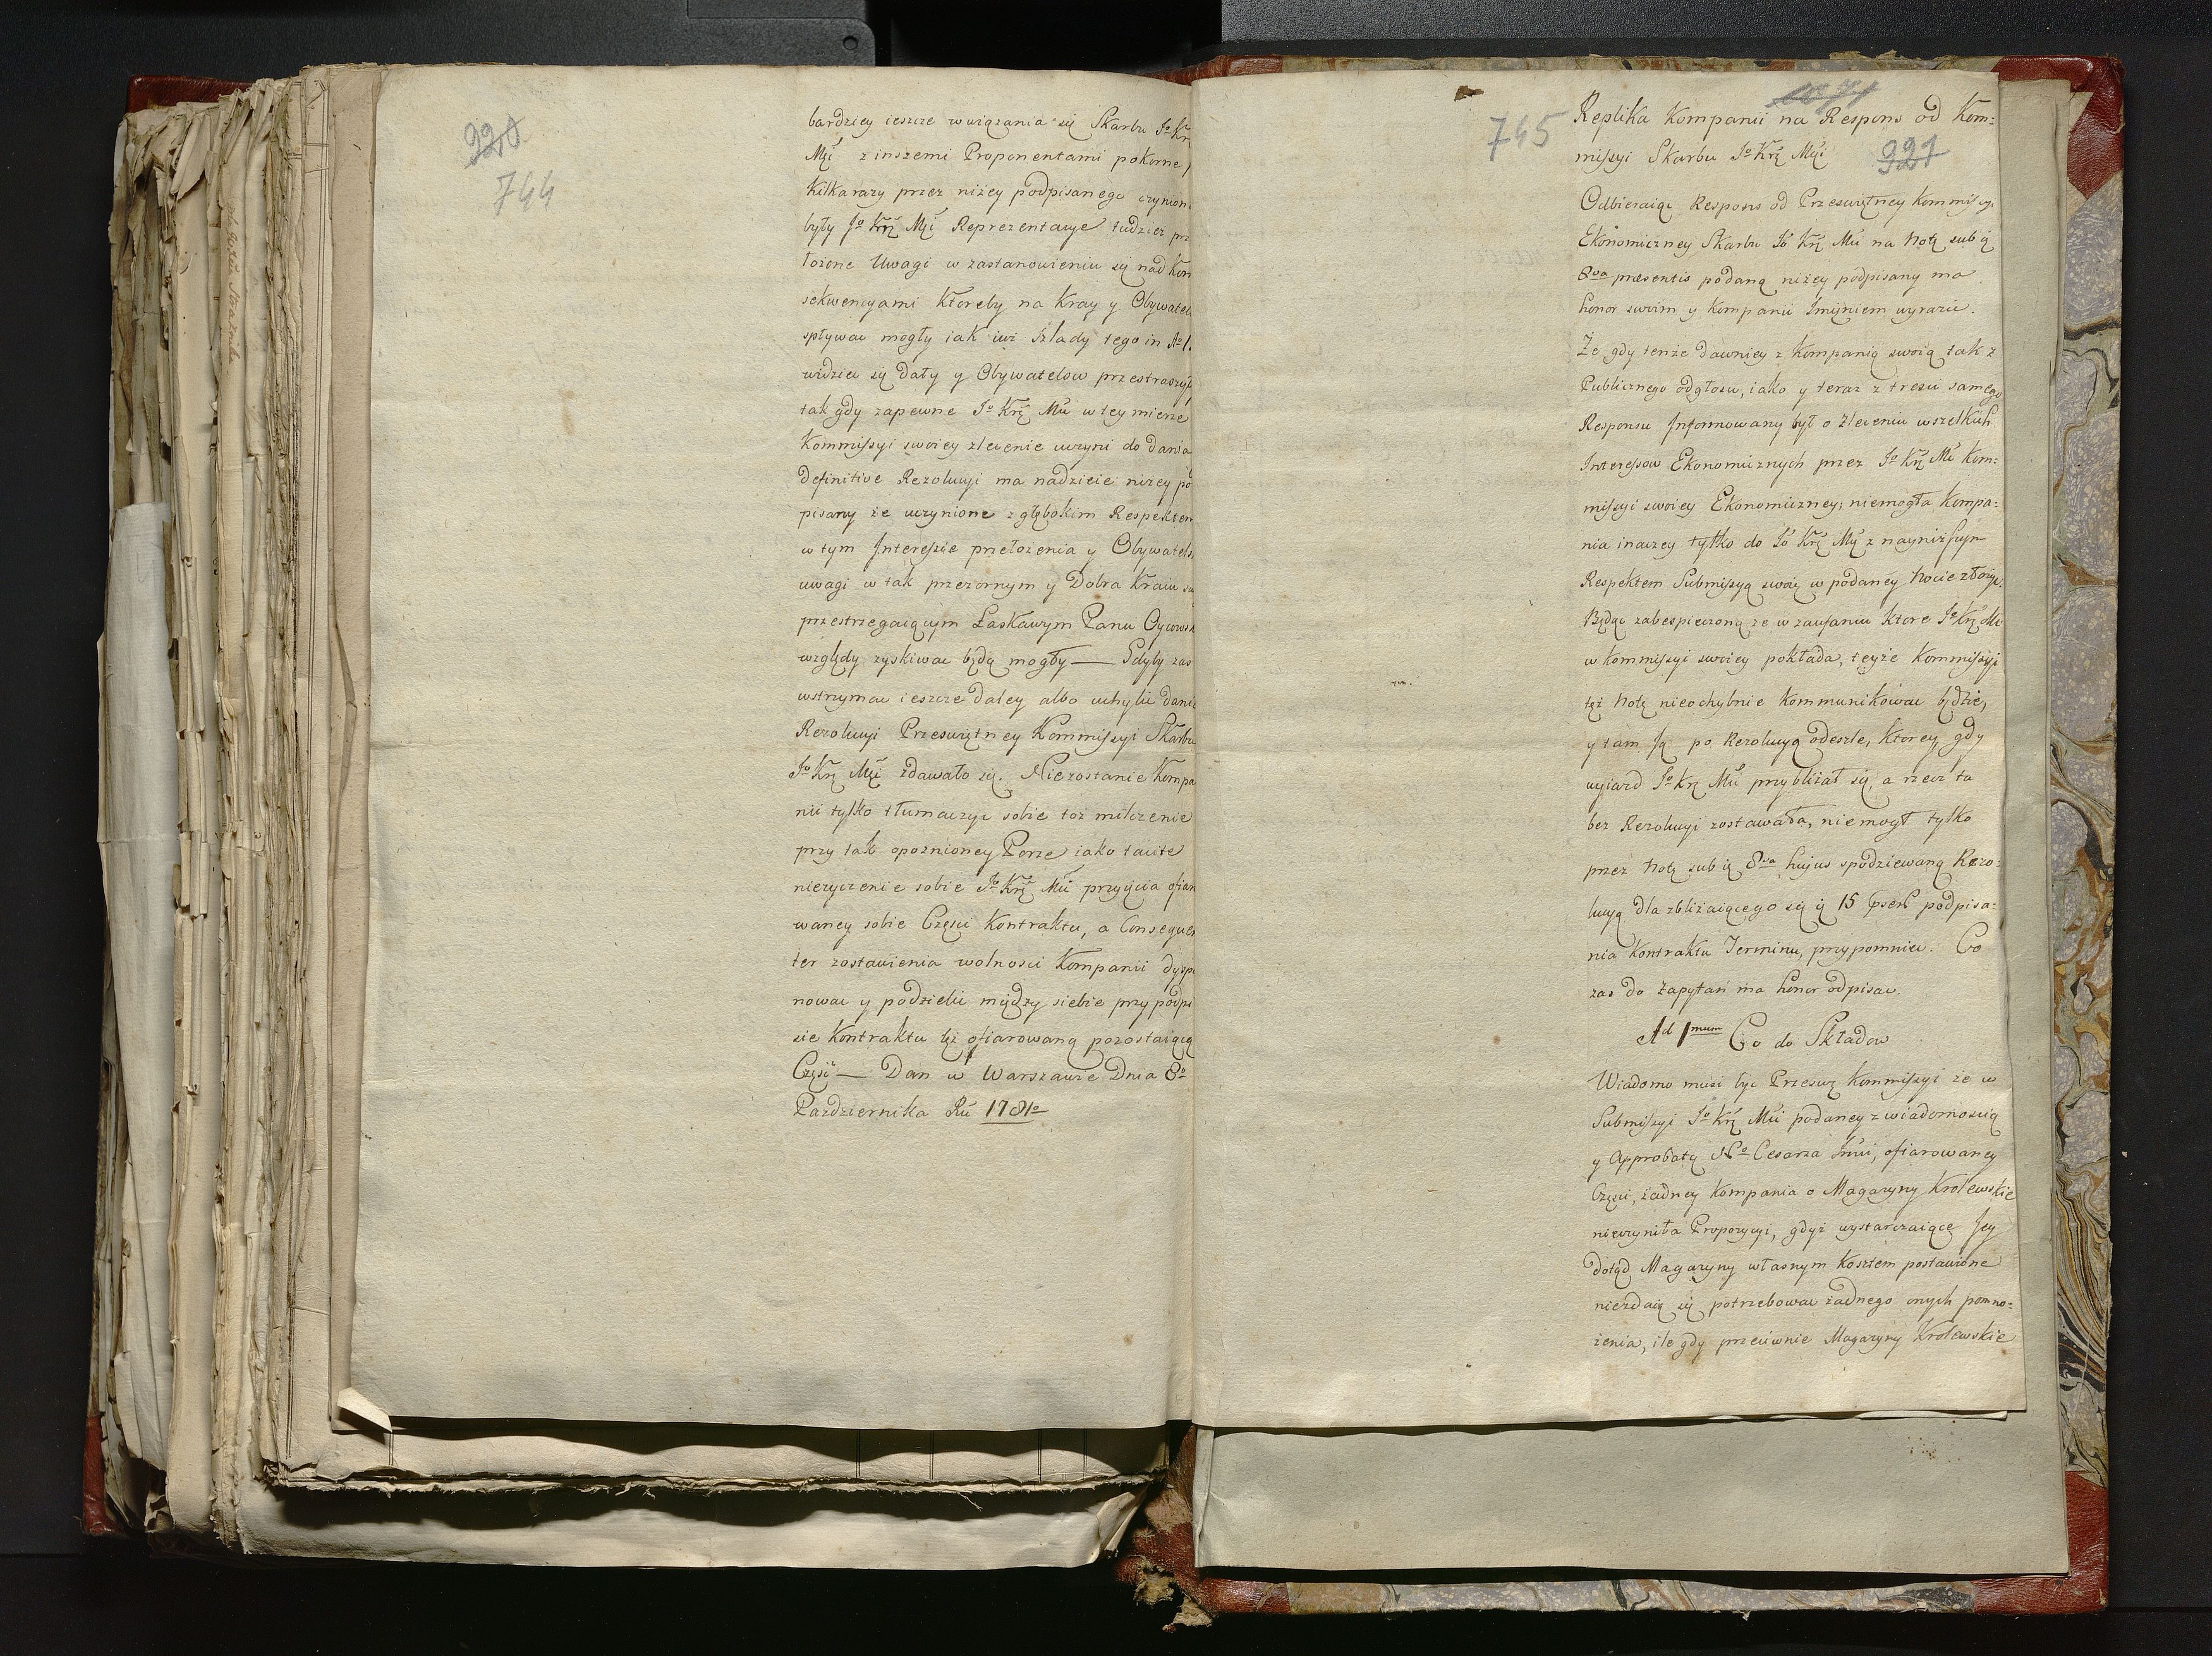 920
744
bardziey ieszcze w wiązania się Skarbu Jº Kr
Mći z inszemi Proponentami pokorne
Kilka razy przez niżey podpisanego czynion
były Jº Krź Mći Reprezentacye tudziez prz
łożone Uwagi w zastanowieniu się nad Kon
sekwencyami ktoreby na Kray y Obywatel
spływac mogły iak iuż szlady tego in Aº 1
widziec się dały y Obywatelow przestraszył
tak gdy zapewne Jº Krź Mći w tey mierze
Kommissyi swoiey zlecenie uczyni do dania
Definitive Rezolucyi ma nadzieie niżey pod
pisany że uczynione z głębokim Respektem
w tym Interessie przełożenia y Obywatels
uwagi w tak przezornym y Dobra Kraiu sw
przestrzegaiącym Łaskawym Panu Oycowsk
względy zyskiwac będą mogły — Gdyby zas
wstrzymac ieszcze daley albo uchylic danie
Rezolucyi Przeswiętney Kommissyi Skarbu
Jº Krź Mći zdawało się. Niezostanie Kompa
nii tylko tłumaczyc sobie toż milczenie
przy tak opoznioney Porze iako tacite
nieżyczenie sobie Jº Krź Mći przyięcia ofiaro
waney sobie Części Kontraktu, a Consequen
ter zostawienia wolnosci Kompanii dyspo
nowac y podzielic między siebie przy podpi
sie Kontraktu tęż ofiarowaną pozostaiącą
Częsć — Dan w Warszawie Dnia 8º
Pazdziernika Rú 1781º
745
921
Replika Kompanii na Respons od Kom:
missyi Skarbu Jº Krź Mći
Odbieraiąc Respons od Przeswiętney Kommissyi
Ekonomiczney Skarbu Jº Krź Mći na Notę sub
8va præsentis podaną niżey podpisany ma
honor swoim y Kompanii Imieniem wyrazic.
Że gdy tenże dawniey z Kompanią swoią tak z
Publicznego odgłosu, iako y teraz z tresci samego
Responsu Informowany był o zleceniu wszelkich
Interessow Ekonomicznych przez Jº Krź Mći Kom:
missyi swoiey Ekonomiczney; niemogła Kompa:
nia inaczey tylko do Jº Krź Mći z nayniższym
Respektem Submissyą swoię w podaney Nocie złożyc.
Będąc zabespieczoną że w zaufaniu ktore Jº Krź Mć
w Kommissyi swoiey pokłada, teyże Kommissyi
tęż Notę nieochybnie kommunikowac będzie,
y tam Ją po Rezolucyą odeszle, ktorey gdy
wyiazd Jº Krź Mći przybliżał się, a rzecz ta
bez Rezolucyi zostawała, niemogł tylko
przez Notę sub 8va hujus spodziewaną Rezo:
lucyą dla zbliżaiącego się 15 podpisa:
nia Kontraktu Terminu, przypomniec. Co
zas do Zapytań ma honor odpisac.
Ad 1mum Co do Składow
Wiadomo musi byc Przesw Kommissyi że w
Submissyi Jº Krź Mći podaney z wiadomoscią
y Approbatą Nº Cesarza Jmci, ofiarowaney
Części, żadney Kompania o Magazyny Krolewskie
nieczyniła Propozycyi, gdyż wystarczaiące Jey
dotąd Magazyny własnym Kosztem postawione
niezdaią się potrzebowac żadnego onych pomno:
żenia, ile gdy przeciwnie Magazyny Krolewskie